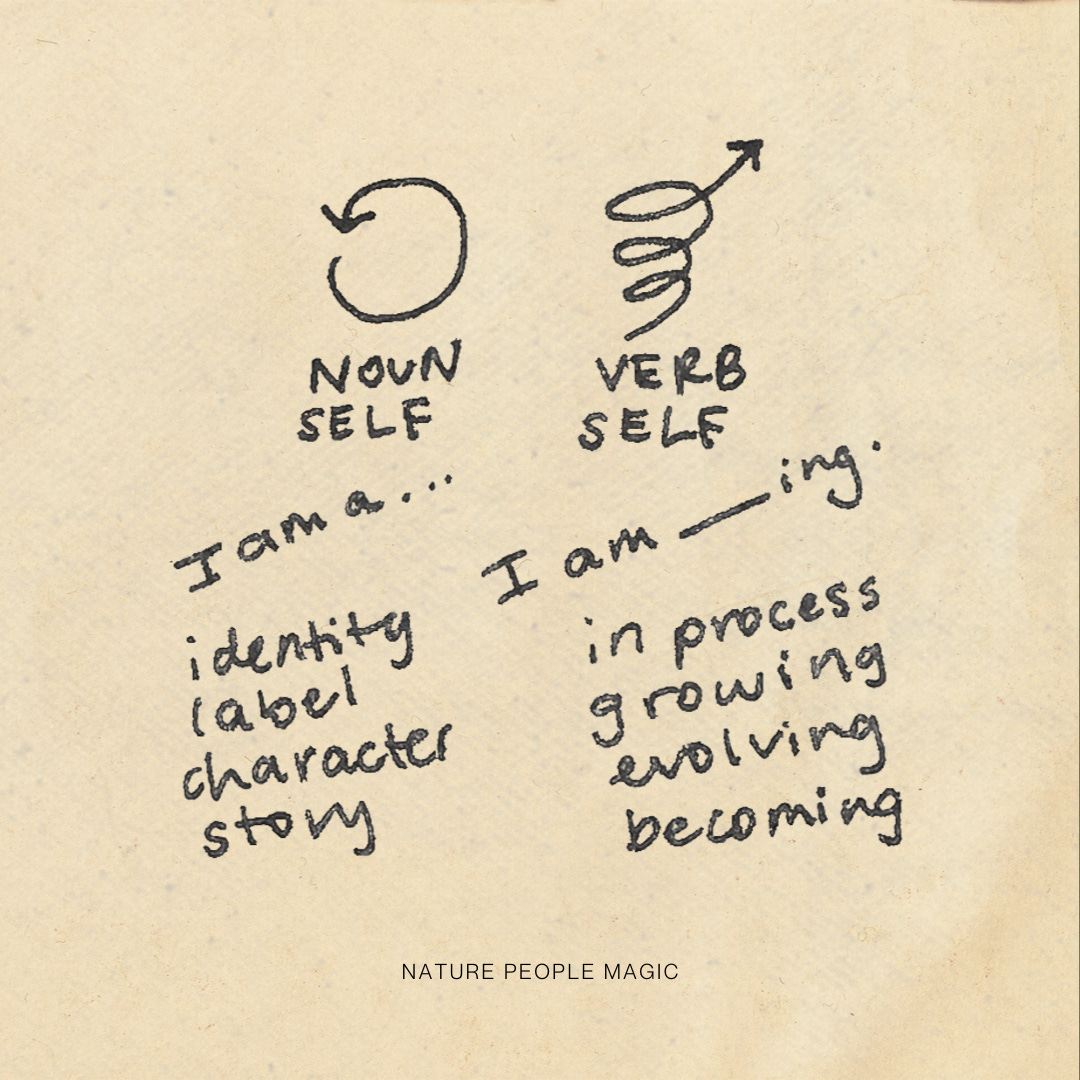 NOUN
SELF
I am a...
identity
label
character
story
VERB
SELF
I am ___ing.
in process
growing
evolving
becoming
NATURE PEOPLE MAGIC